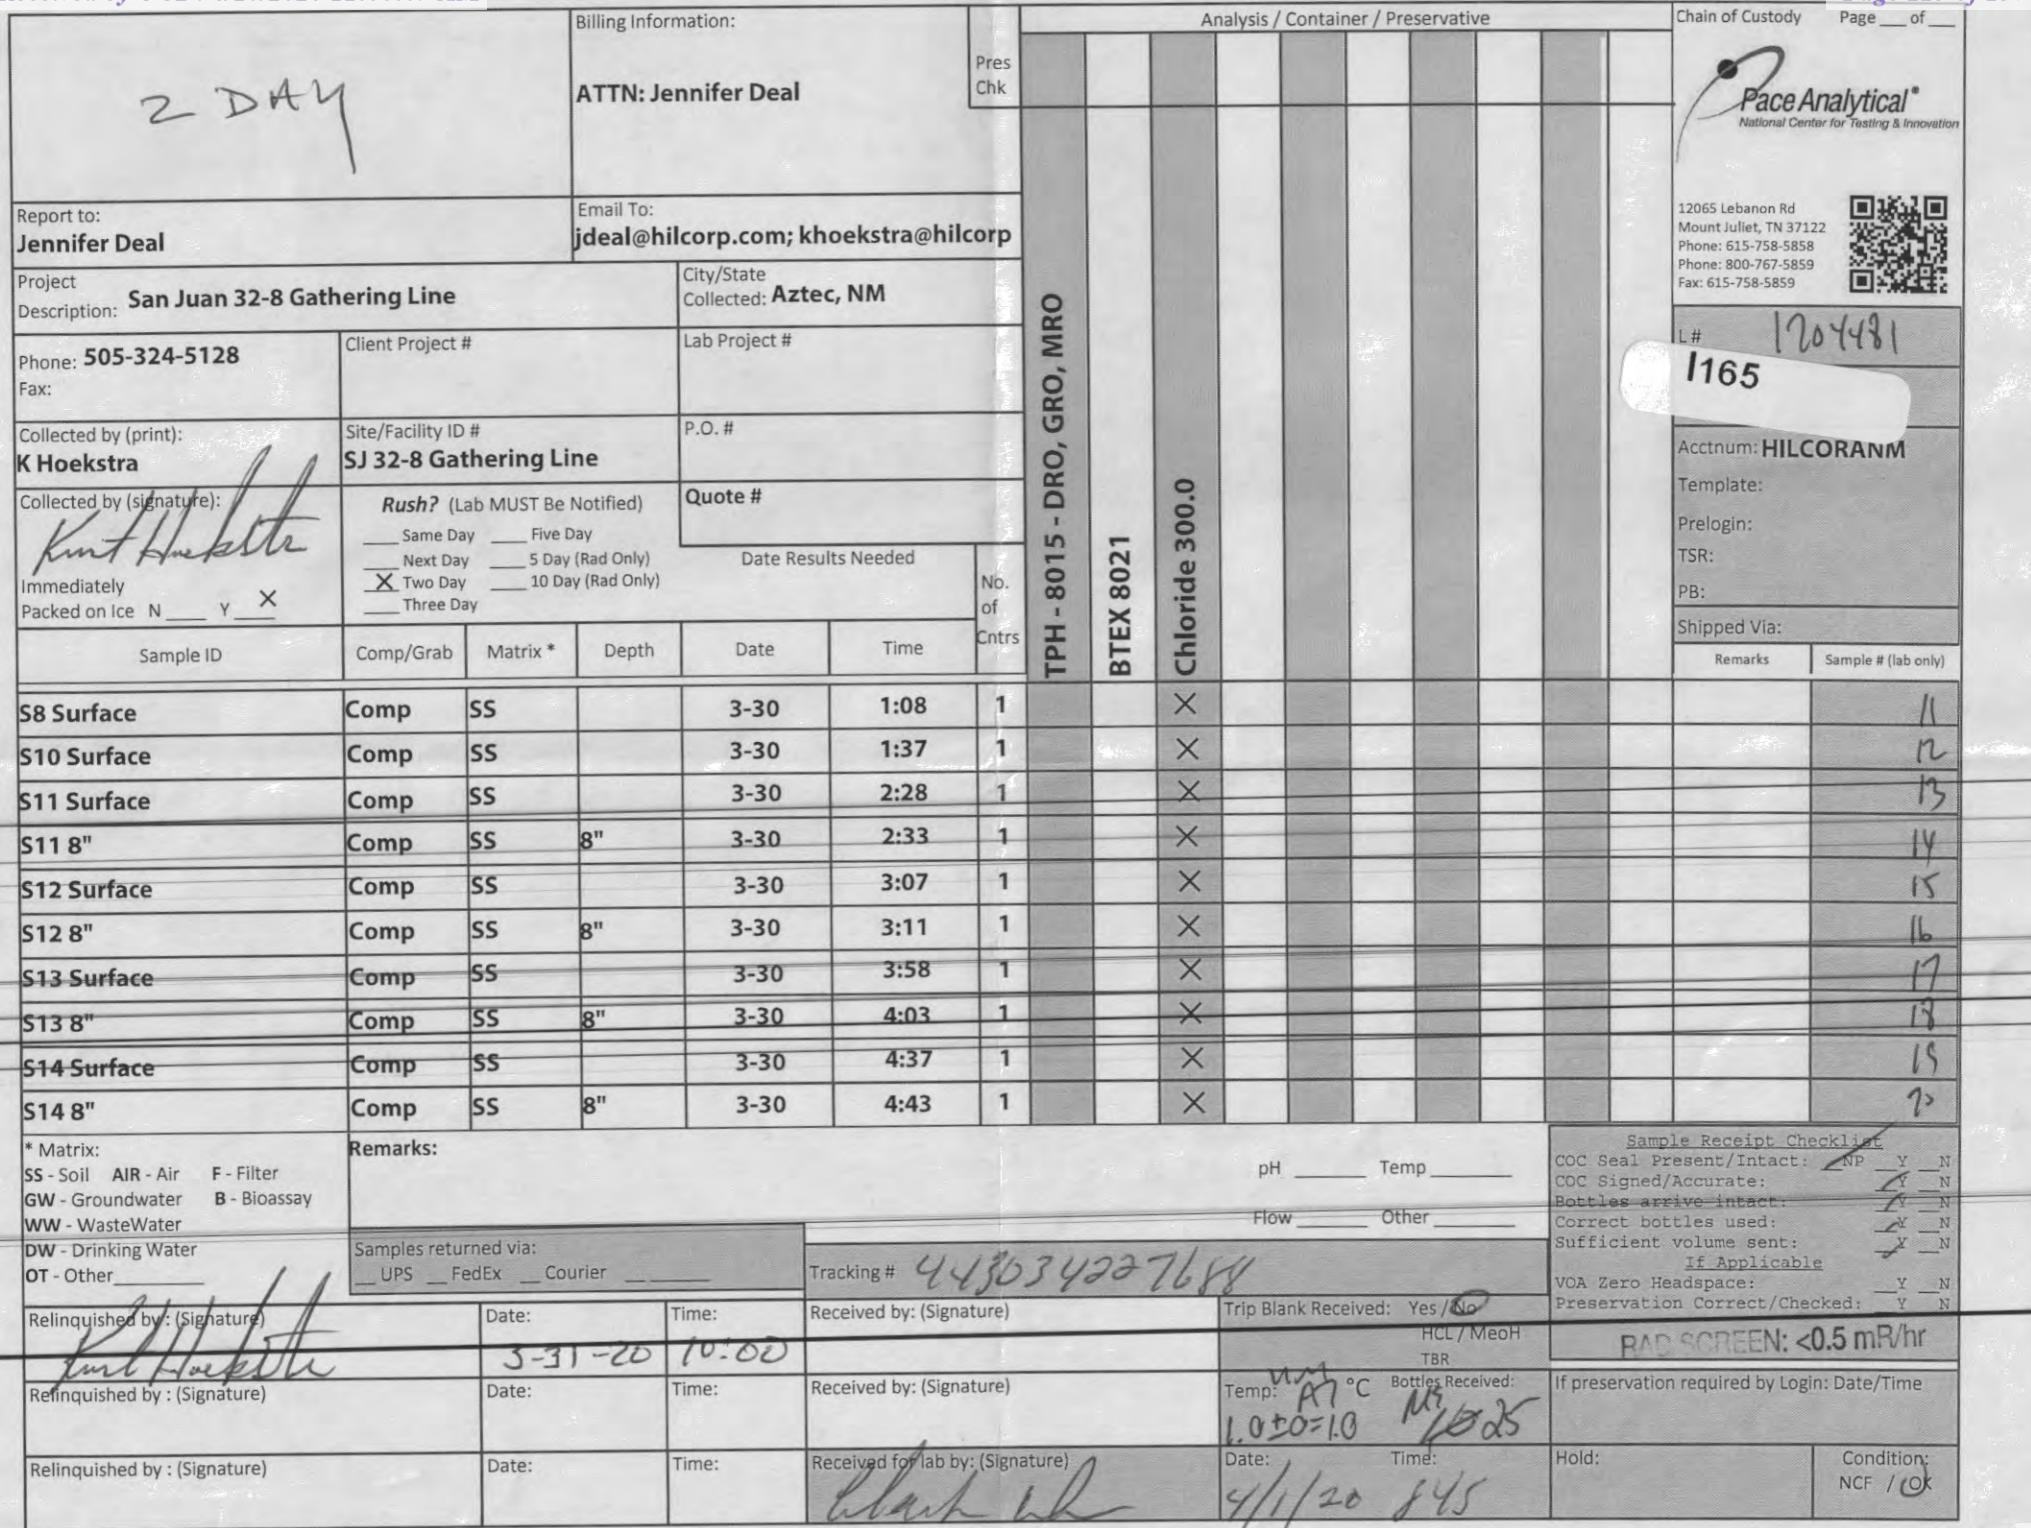 2 DAY
Billing Information:
ATTN: Jennifer Deal
Pres
Chk
Analysis / Container / Preservative
Chain of Custody Page ___ of ___
Pace Analytical®
National Center for Testing & Innovation
12065 Lebanon Rd
Mount Juliet, TN 37122
Phone: 615-758-5858
Phone: 800-767-5859
Fax: 615-758-5859
Report to:
Jennifer Deal
Email To:
jdeal@hilcorp.com; khoekstra@hilcorp
Project
Description: San Juan 32-8 Gathering Line
City/State
Collected: Aztec, NM
Phone: 505-324-5128
Fax:
Client Project #
Lab Project #
L# 1204481
I165
Collected by (print):
K Hoekstra
Site/Facility ID #
SJ 32-8 Gathering Line
P.O. #
Acctnum: HILCORANM
Template:
Prelogin:
TSR:
PB:
Shipped Via:
Collected by (signature):
Kurt Hoekstra
Immediately
Packed on Ice N ___ Y X
Rush? (Lab MUST Be Notified)
___ Same Day ___ Five Day
___ Next Day ___ 5 Day (Rad Only)
X Two Day ___ 10 Day (Rad Only)
___ Three Day
Quote #
Date Results Needed
No.
of
Cntrs
TPH - 8015 - DRO, GRO, MRO
BTEX 8021
Chloride 300.0
Sample ID Comp/Grab Matrix * Depth Date Time Remarks Sample # (lab only)
S8 Surface Comp SS 3-30 1:08 1 X 11
S10 Surface Comp SS 3-30 1:37 1 X 12
S11 Surface Comp SS 3-30 2:28 1 X 13
S11 8" Comp SS 8" 3-30 2:33 1 X 14
S12 Surface Comp SS 3-30 3:07 1 X 15
S12 8" Comp SS 8" 3-30 3:11 1 X 16
S13 Surface Comp SS 3-30 3:58 1 X 17
S13 8" Comp SS 8" 3-30 4:03 1 X 18
S14 Surface Comp SS 3-30 4:37 1 X 19
S14 8" Comp SS 8" 3-30 4:43 1 X 20
* Matrix:
SS - Soil AIR - Air F - Filter
GW - Groundwater B - Bioassay
WW - WasteWater
DW - Drinking Water
OT - Other
Remarks:
pH ___ Temp ___
Flow ___ Other ___
Samples returned via:
__ UPS __ FedEx __ Courier
Tracking # 443034227688
Sample Receipt Checklist
COC Seal Present/Intact: NP Y N
COC Signed/Accurate: Y N
Bottles arrive intact: Y N
Correct bottles used: Y N
Sufficient volume sent: Y N
If Applicable
VOA Zero Headspace: Y N
Preservation Correct/Checked: Y N
RAD SCREEN: <0.5 mR/hr
Relinquished by : (Signature)
Kurt Hoekstra
Date:
3-31-20
Time:
10:00
Received by: (Signature)
Trip Blank Received: Yes / No
HCL / MeoH
TBR
Relinquished by : (Signature)
Date:
Time:
Received by: (Signature)
Temp: °C
1.0±0=1.0
Bottles Received:
25
If preservation required by Login: Date/Time
Relinquished by : (Signature)
Date:
Time:
Received for lab by: (Signature)
Date:
4/1/20
Time:
845
Hold:
Condition:
NCF / OK